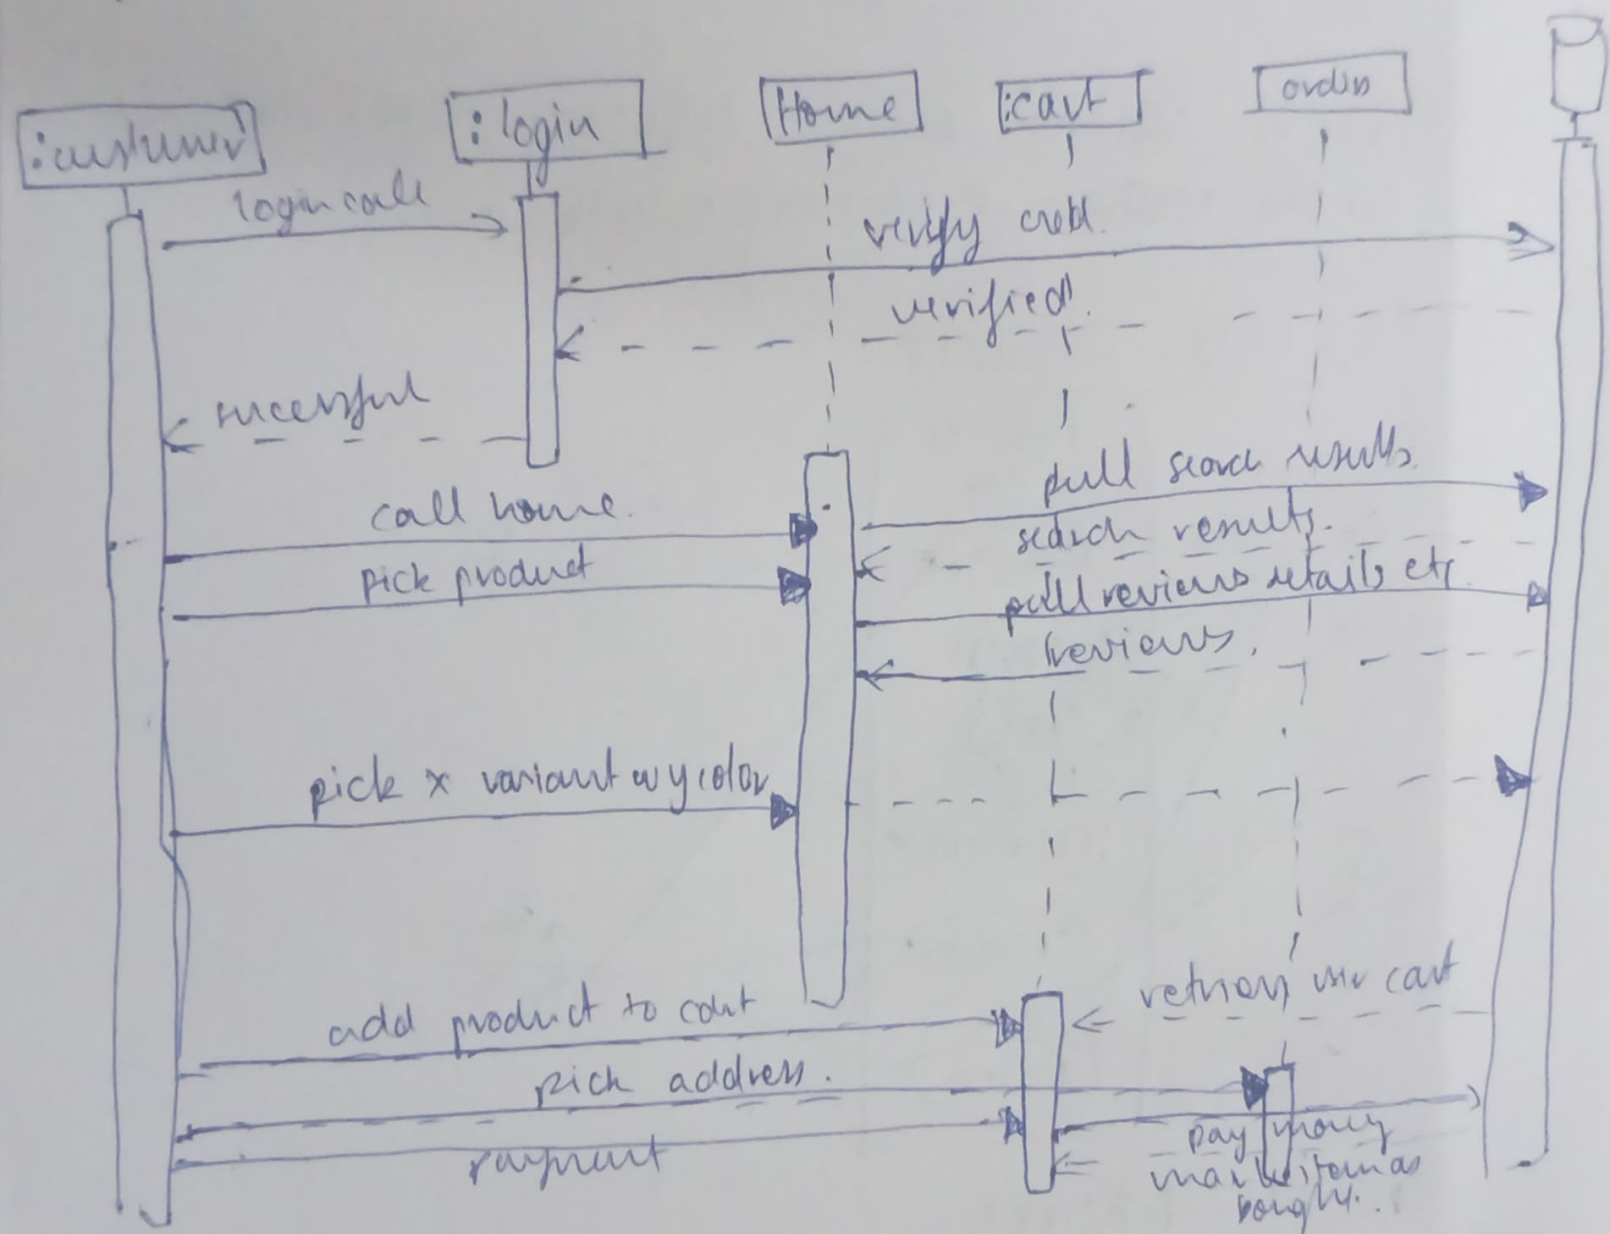 :customer
:login
Home
:cart
orders
login call
verify cred.
verified.
successful
pull search results.
call home.
search results.
pick product
pull reviews details etc.
reviews.
pick x variant w y color
retrieve user cart
add product to cart
pick address.
payment
pay money
mark item as
bought.